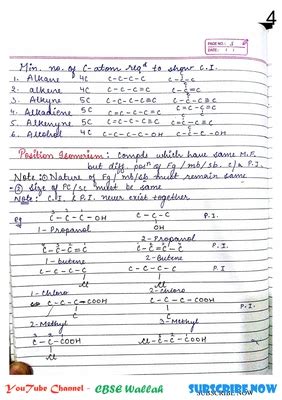 4
PAGE NO. 3
DATE
Min. no. of C-atom reqd to show C.I.
1. Alkane 4C C-C-C-C C-C-C
C
2. alkene 4C C-C-C=C C-C=C
C
3. Alkyne 5C C-C-C-C≡C C-C-C≡C
C
4. Alkadiene 5C C=C-C-C=C C=C-C=C
C
5. Alkenyne 5C
6. Alcohol 4C C-C-C-C-OH C-C-C-OH
C
Position Isomerism: Compds which have same M.F.
but diff. posn of Fg / mb/sb. c/a P.I.
Note:① Nature of Fg / mb/sb must remain same
② size of PC/SC must be same
Note: C.I. & P.I. never exist together.
Eg C-C-C-OH C-C-C P.I.
OH
1-Propanol 2-Propanol
C-C-C=C C-C=C-C P.I.
1-butene 2-Butene
C-C-C-C C-C-C-C P.I
Cl Cl
1-chloro 2-chloro
C-C-C-COOH C-C-C-COOH P.I.
C C
2-Methyl 3-Methyl
C-C-COOH Cl-C-C-COOH
Cl
YouTube Channel - CBSE Wallah SUBSCRIBE NOW
SUBSCRIBE NOW